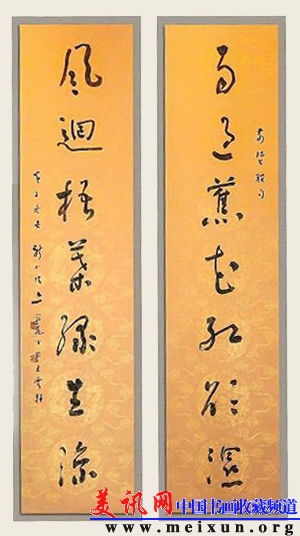 雨過蕉花紅欲濕
前賢聯句
風迴梧葉綠生涼
美讯网 中国书画收藏频道
www.meixun.org